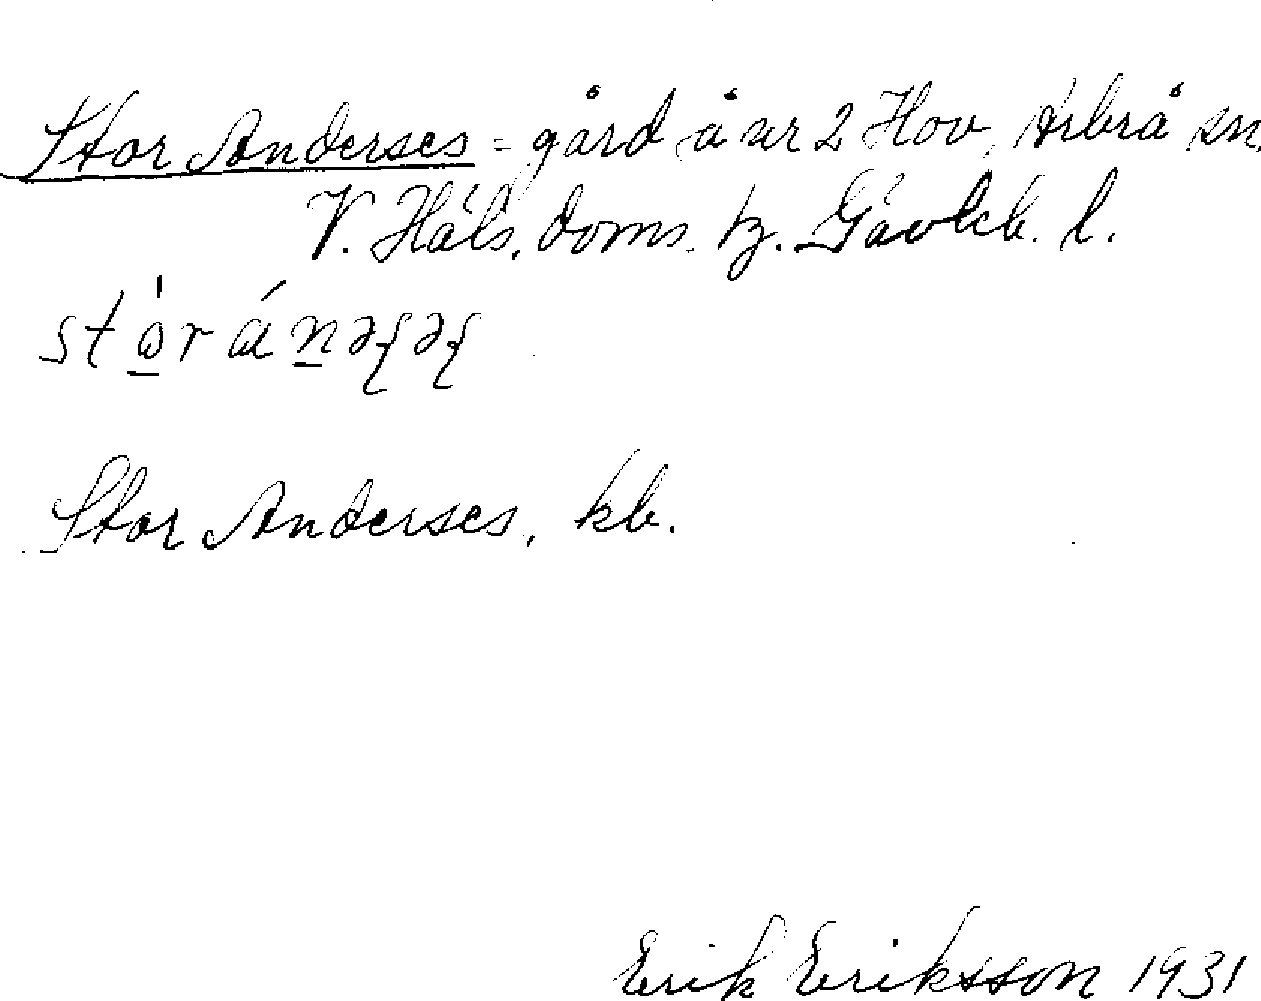 Stor Anderses = gård å nr 2 Hov, Arbrå sn.
V. Häls. doms. tz. Gävleb. l.
Stor Anderses, kb.
Erik Eriksson 1931